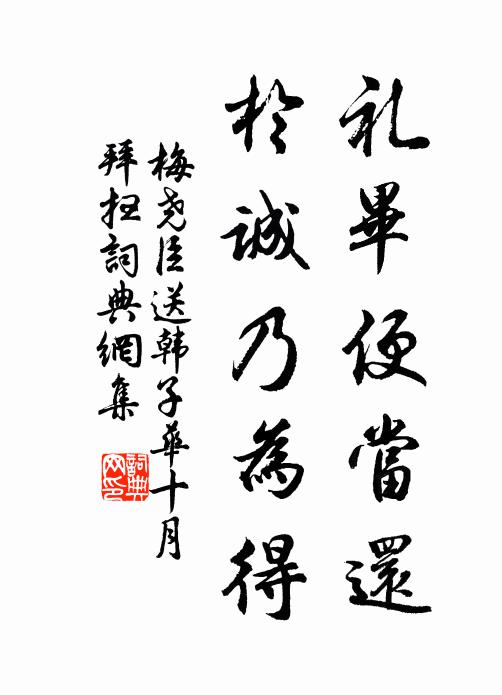 礼畢便當還
於誠乃為得
梅尧臣送韩子華十月
拜扭詞典網集
詞典网印